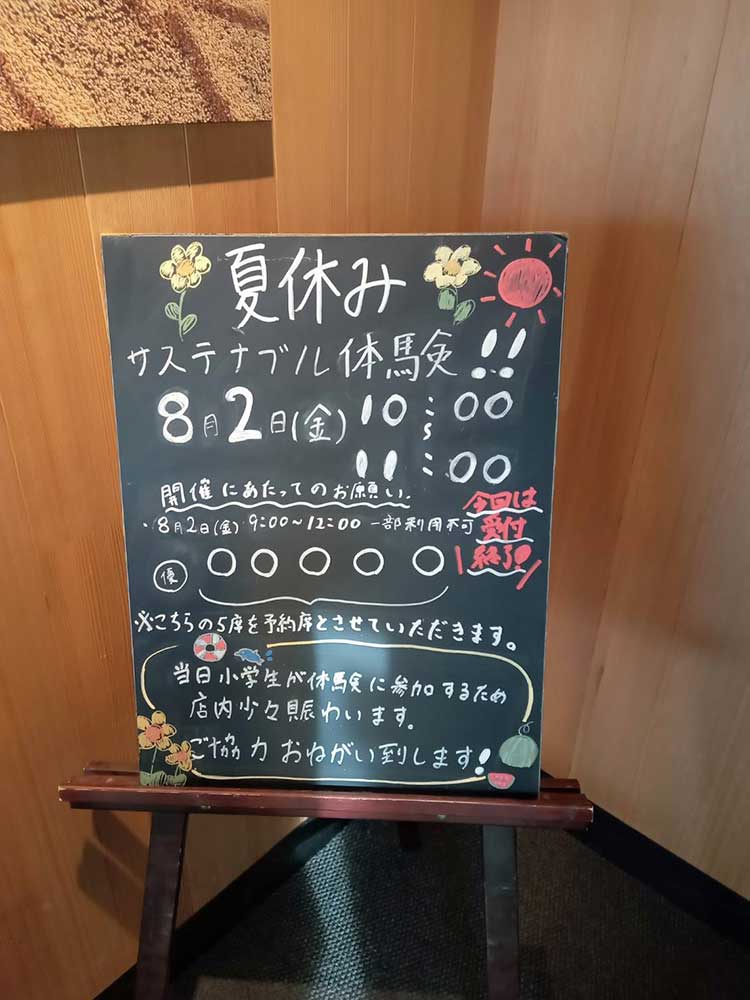 夏休み
サステナブル体験!!
8月2日(金) 10:00
~
11:00
開催にあたってのお願い.
・8月2日(金) 9:00~12:00 一部利用不可
今回は
受付
終了!
優 ○○○○○
※こちらの5席を予約席とさせていただきます。
当日小学生が体験に参加するため
店内少々賑わいます。
ご協力おねがい到します!